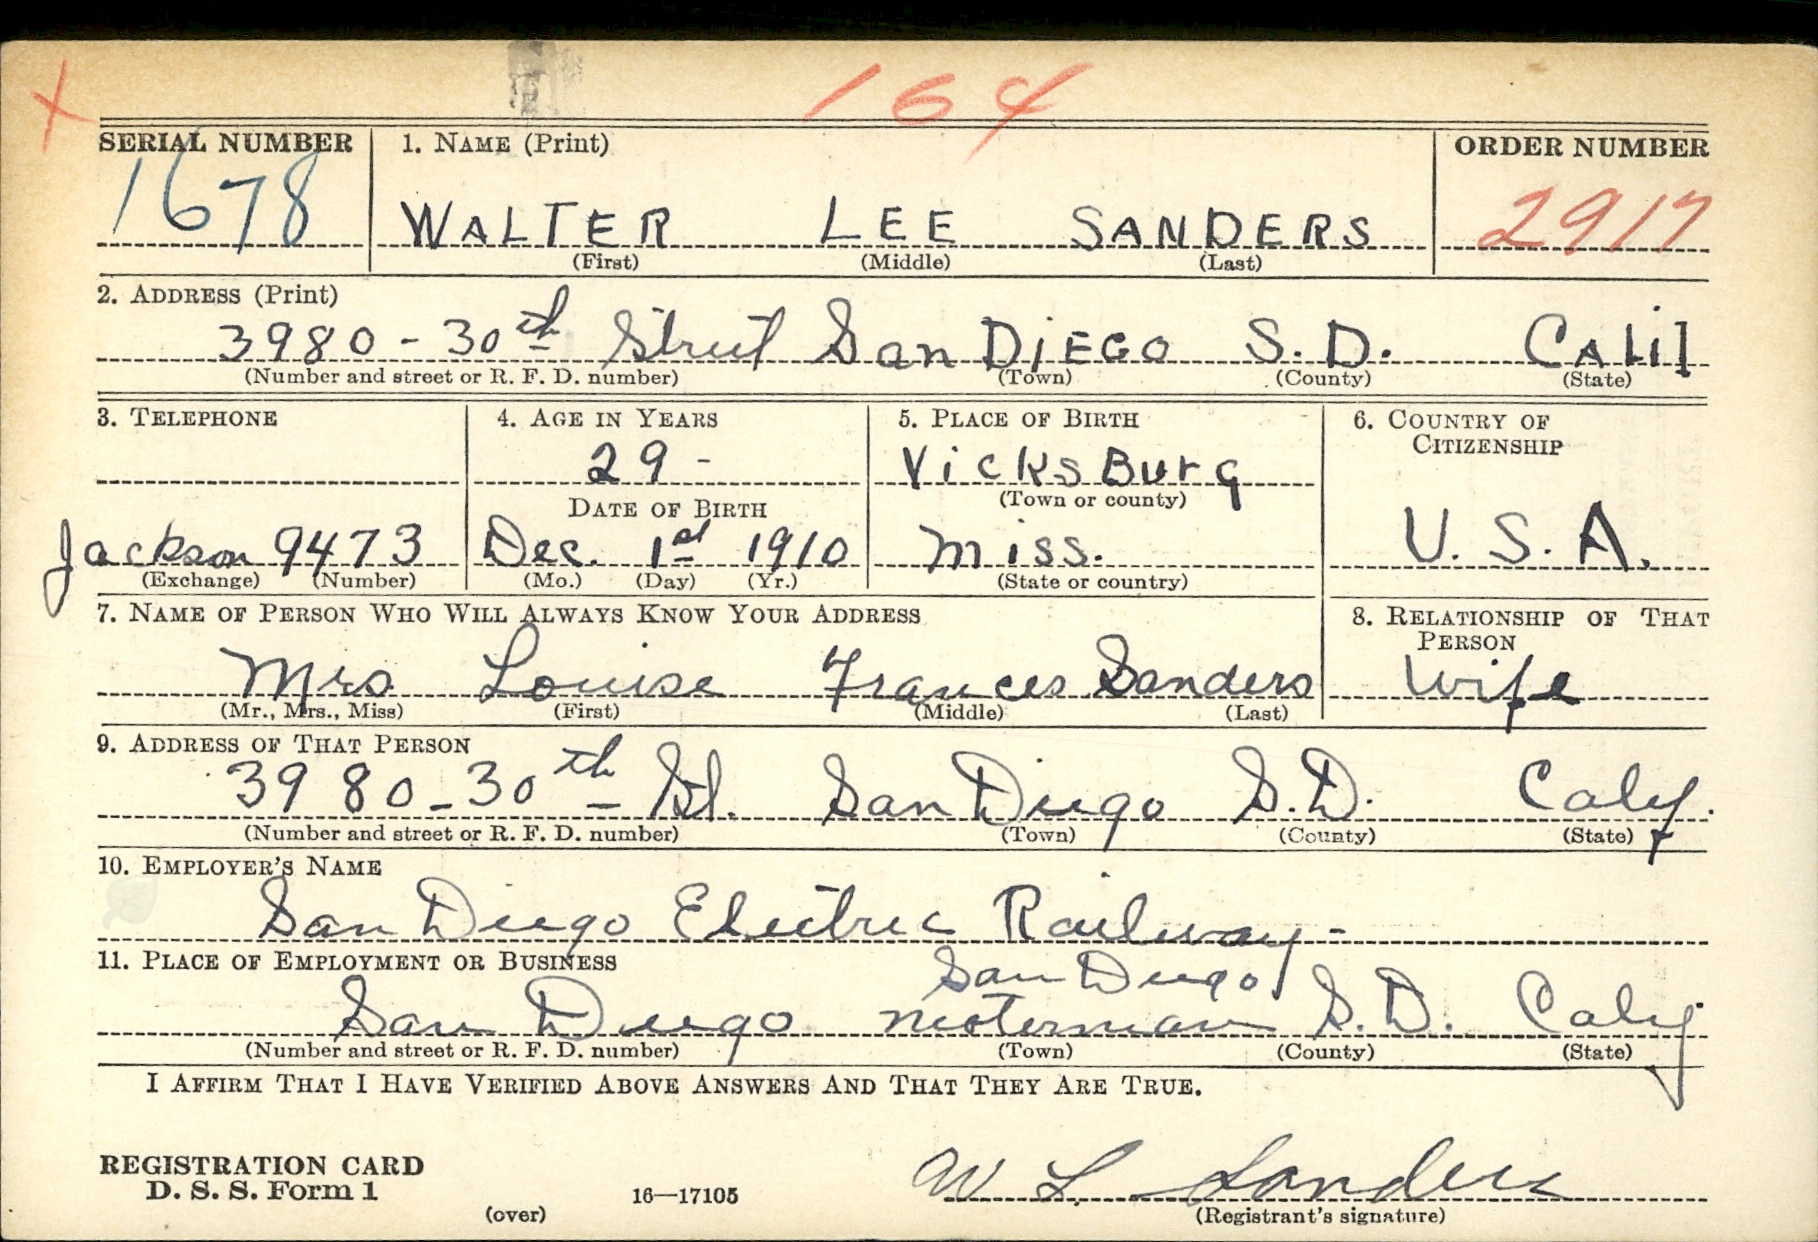 x 164
SERIAL NUMBER 1. NAME (Print) ORDER NUMBER
1678 WALTER LEE SANDERS 2917
(First) (Middle) (Last)
2. ADDRESS (Print)
3980 - 30th Street San DiEGO S. D. CAlif
(Number and street or R. F. D. number) (Town) (County) (State)
3. TELEPHONE 4. AGE IN YEARS 5. PLACE OF BIRTH 6. COUNTRY OF
CITIZENSHIP
29 - VicksBurg
DATE OF BIRTH (Town or county)
Jackson 9473 Dec. 1st 1910 Miss. U. S. A.
(Exchange) (Number) (Mo.) (Day) (Yr.) (State or country)
7. NAME OF PERSON WHO WILL ALWAYS KNOW YOUR ADDRESS 8. RELATIONSHIP OF THAT
PERSON
Mrs Louise Frances Sanders Wife
(Mr., Mrs., Miss) (First) (Middle) (Last)
9. ADDRESS OF THAT PERSON
3980 - 30th St. San Diego S. D. Calif.
(Number and street or R. F. D. number) (Town) (County) (State)
10. EMPLOYER'S NAME
San Diego Electric Railway -
11. PLACE OF EMPLOYMENT OR BUSINESS
San Diego
San Diego Moterman S. D. Calif
(Number and street or R. F. D. number) (Town) (County) (State)
I AFFIRM THAT I HAVE VERIFIED ABOVE ANSWERS AND THAT THEY ARE TRUE.
REGISTRATION CARD
D. S. S. Form 1 16—17105 W L Sanders
(over) (Registrant's signature)